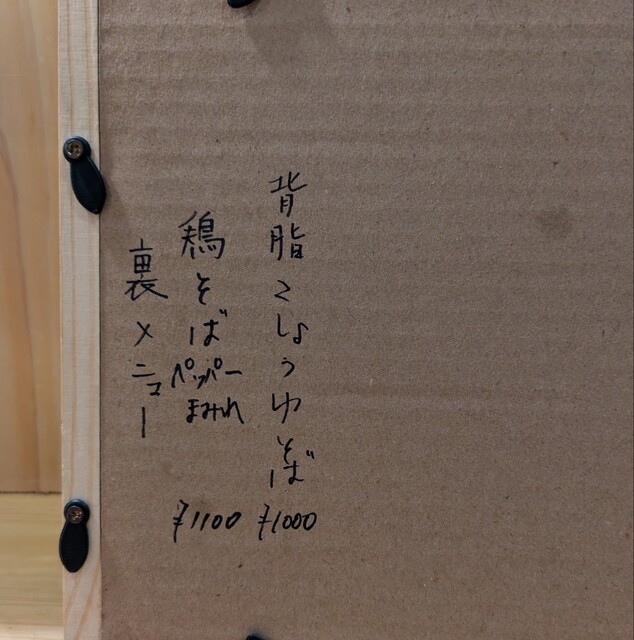 背脂こしょうゆそば ¥1000
鶏そば
ペッパー
まみれ
¥1100
裏メニュー